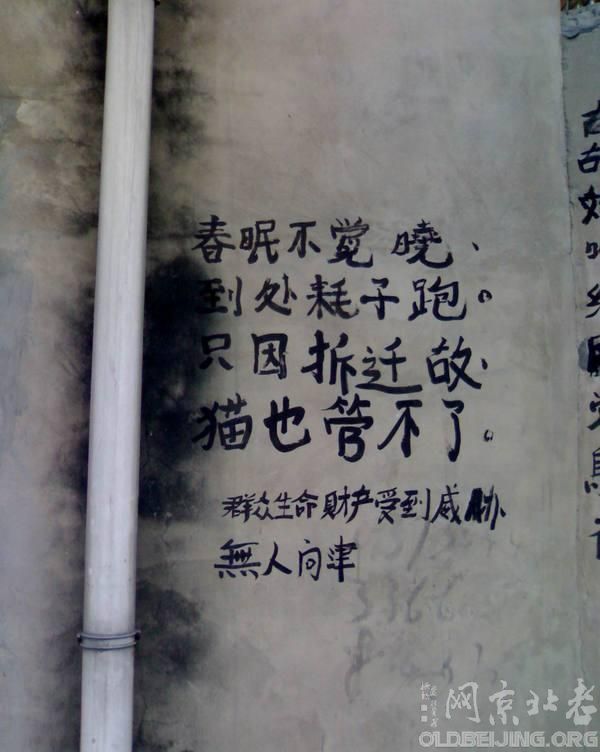 春眠不覚曉、
到处耗子跑。
只因拆迁故、
猫也管不了。
群众生命財产受到威胁
無人向津
老北京网
OLDBEIJING.ORG